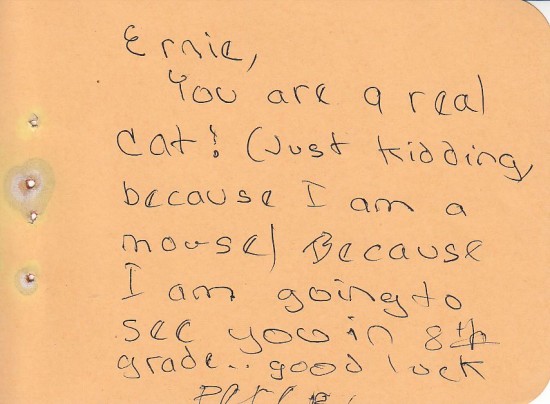 Ernie,
You are a real
cat! (Just kidding,
because I am a
mouse) Because
I am going to
see you in 8th
grade.. good luck